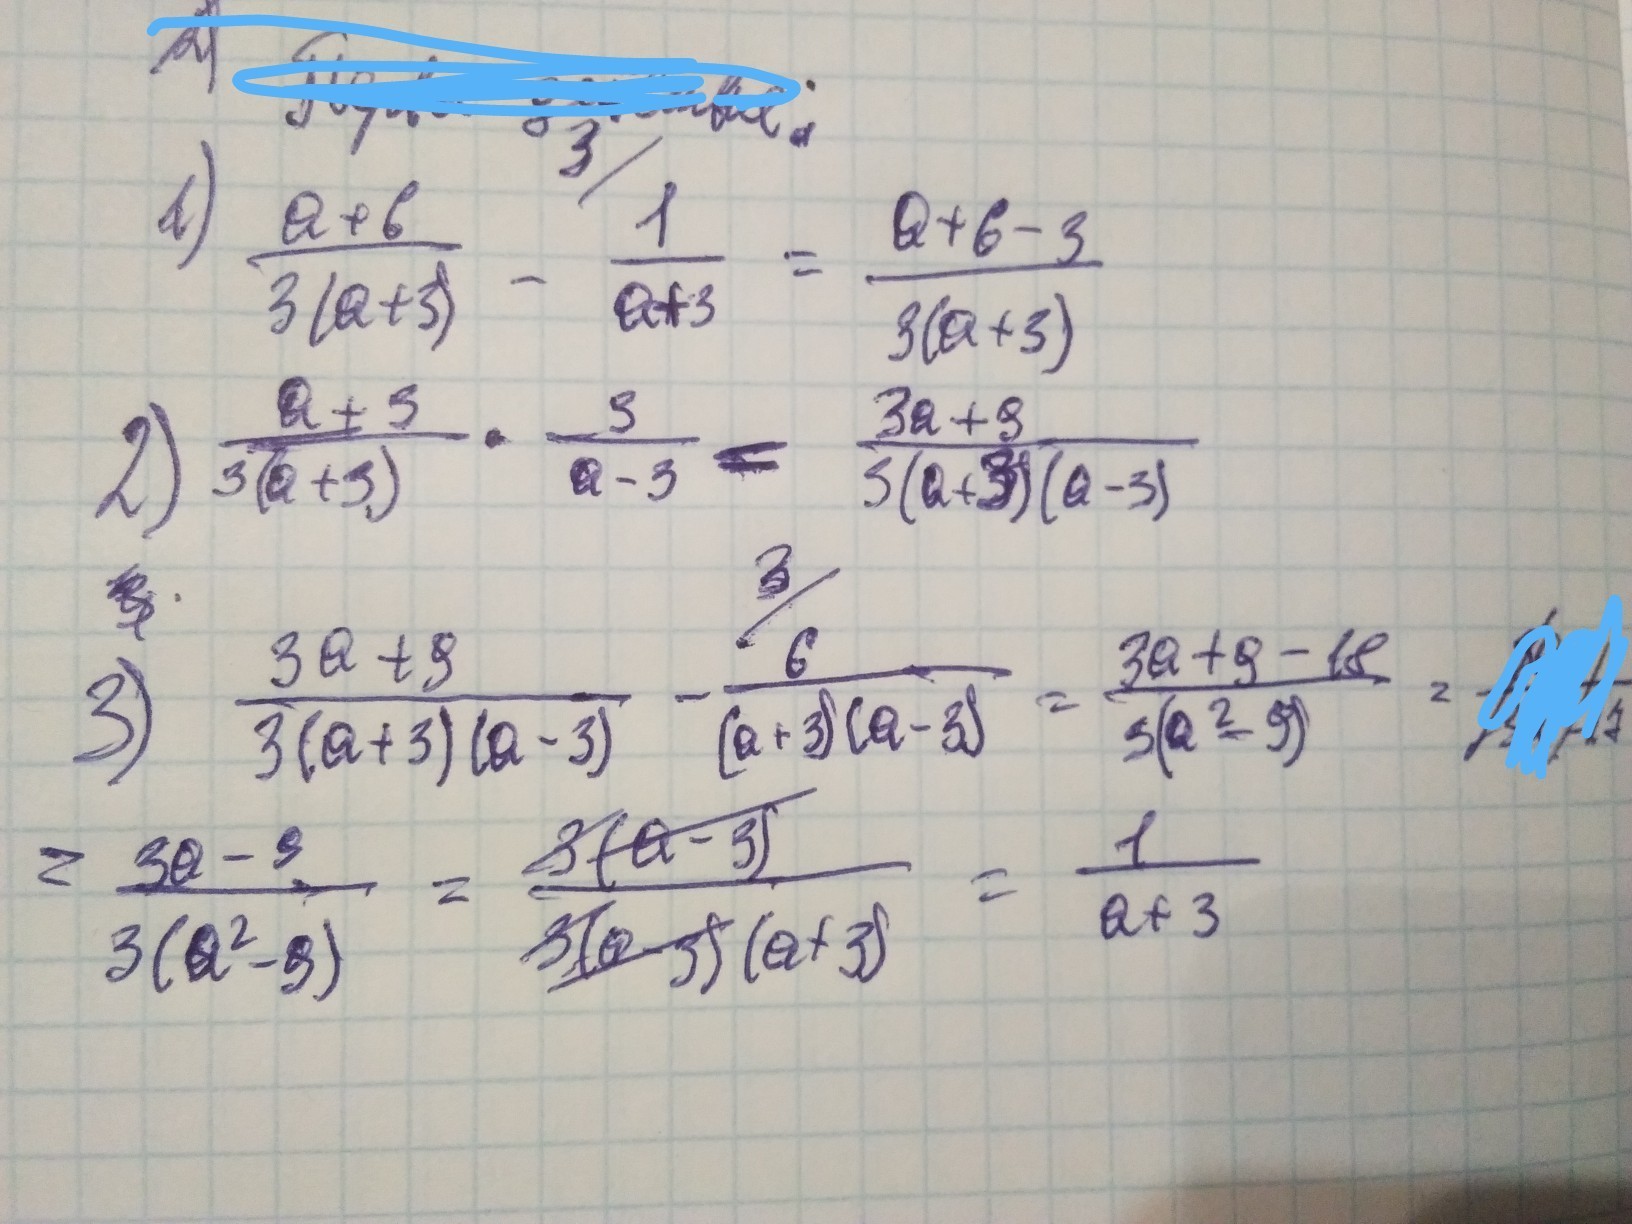 3/
1) (a+6)/(3(a+3)) - 1/(a+3) = (a+6-3)/(3(a+3))
2) (a+3)/(3(a+3)) · 3/(a-3) = (3a+9)/(3(a+3)(a-3))
3/
3) (3a+9)/(3(a+3)(a-3)) - 6/((a+3)(a-3)) = (3a+9-18)/(3(a²-9)) =
= (3a-9)/(3(a²-9)) = (3(a-3))/(3(a-3)(a+3)) = 1/(a+3)